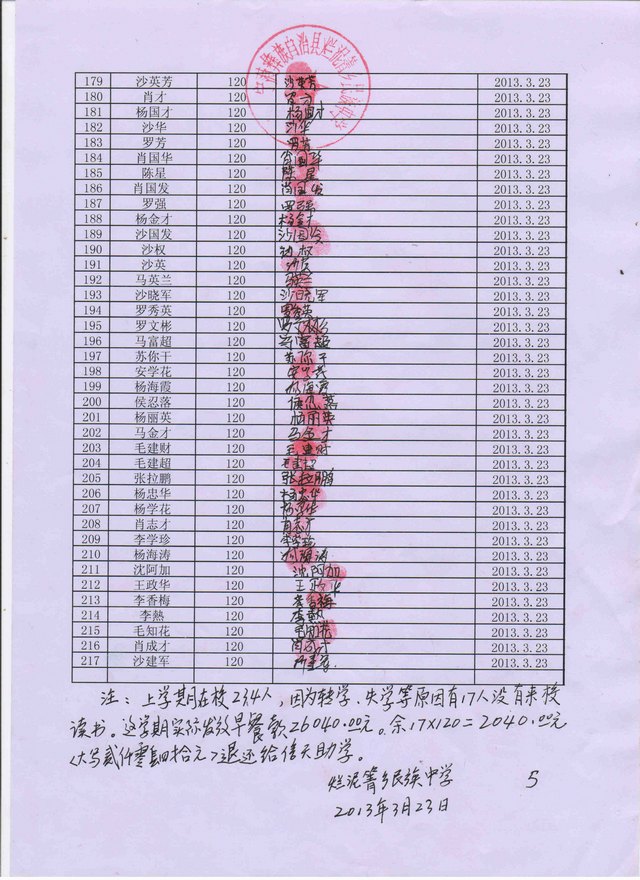 179 沙英芳 120 沙英芳 2013.3.23
180 肖才 120 2013.3.23
181 杨国才 120 杨国才 2013.3.23
182 沙华 120 沙华 2013.3.23
183 罗芳 120 罗芳 2013.3.23
184 肖国华 120 肖国华 2013.3.23
185 陈星 120 陈星 2013.3.23
186 肖国发 120 肖国发 2013.3.23
187 罗强 120 罗强 2013.3.23
188 杨金才 120 杨金才 2013.3.23
189 沙国发 120 沙国发 2013.3.23
190 沙权 120 沙权 2013.3.23
191 沙英 120 2013.3.23
192 马英兰 120 2013.3.23
193 沙晓军 120 沙晓军 2013.3.23
194 罗秀英 120 罗秀英 2013.3.23
195 罗文彬 120 罗文彬 2013.3.23
196 马富超 120 马富超 2013.3.23
197 苏你干 120 苏你干 2013.3.23
198 安学花 120 安学花 2013.3.23
199 杨海霞 120 杨海霞 2013.3.23
200 侯忍落 120 侯忍落 2013.3.23
201 杨丽英 120 杨丽英 2013.3.23
202 马金才 120 马金才 2013.3.23
203 毛建财 120 毛建财 2013.3.23
204 毛建超 120 毛建超 2013.3.23
205 张拉鹏 120 张拉鹏 2013.3.23
206 杨忠华 120 杨忠华 2013.3.23
207 杨学花 120 2013.3.23
208 肖志才 120 肖志才 2013.3.23
209 李学珍 120 李学珍 2013.3.23
210 杨海涛 120 杨海涛 2013.3.23
211 沈阿加 120 沈阿加 2013.3.23
212 王政华 120 王政华 2013.3.23
213 李香梅 120 李香梅 2013.3.23
214 李熱 120 李熱 2013.3.23
215 毛知花 120 毛知花 2013.3.23
216 肖成才 120 肖成才 2013.3.23
217 沙建军 120 2013.3.23
注：上学期在校234人，因为转学、失学等原因有17人没有来校
读书。这学期实际发放早餐款26040.00元。余17×120=2040.00元
(大写贰仟零肆拾元)退还给倍天助学。
烂泥箐乡民族中学 5
2013年3月23日